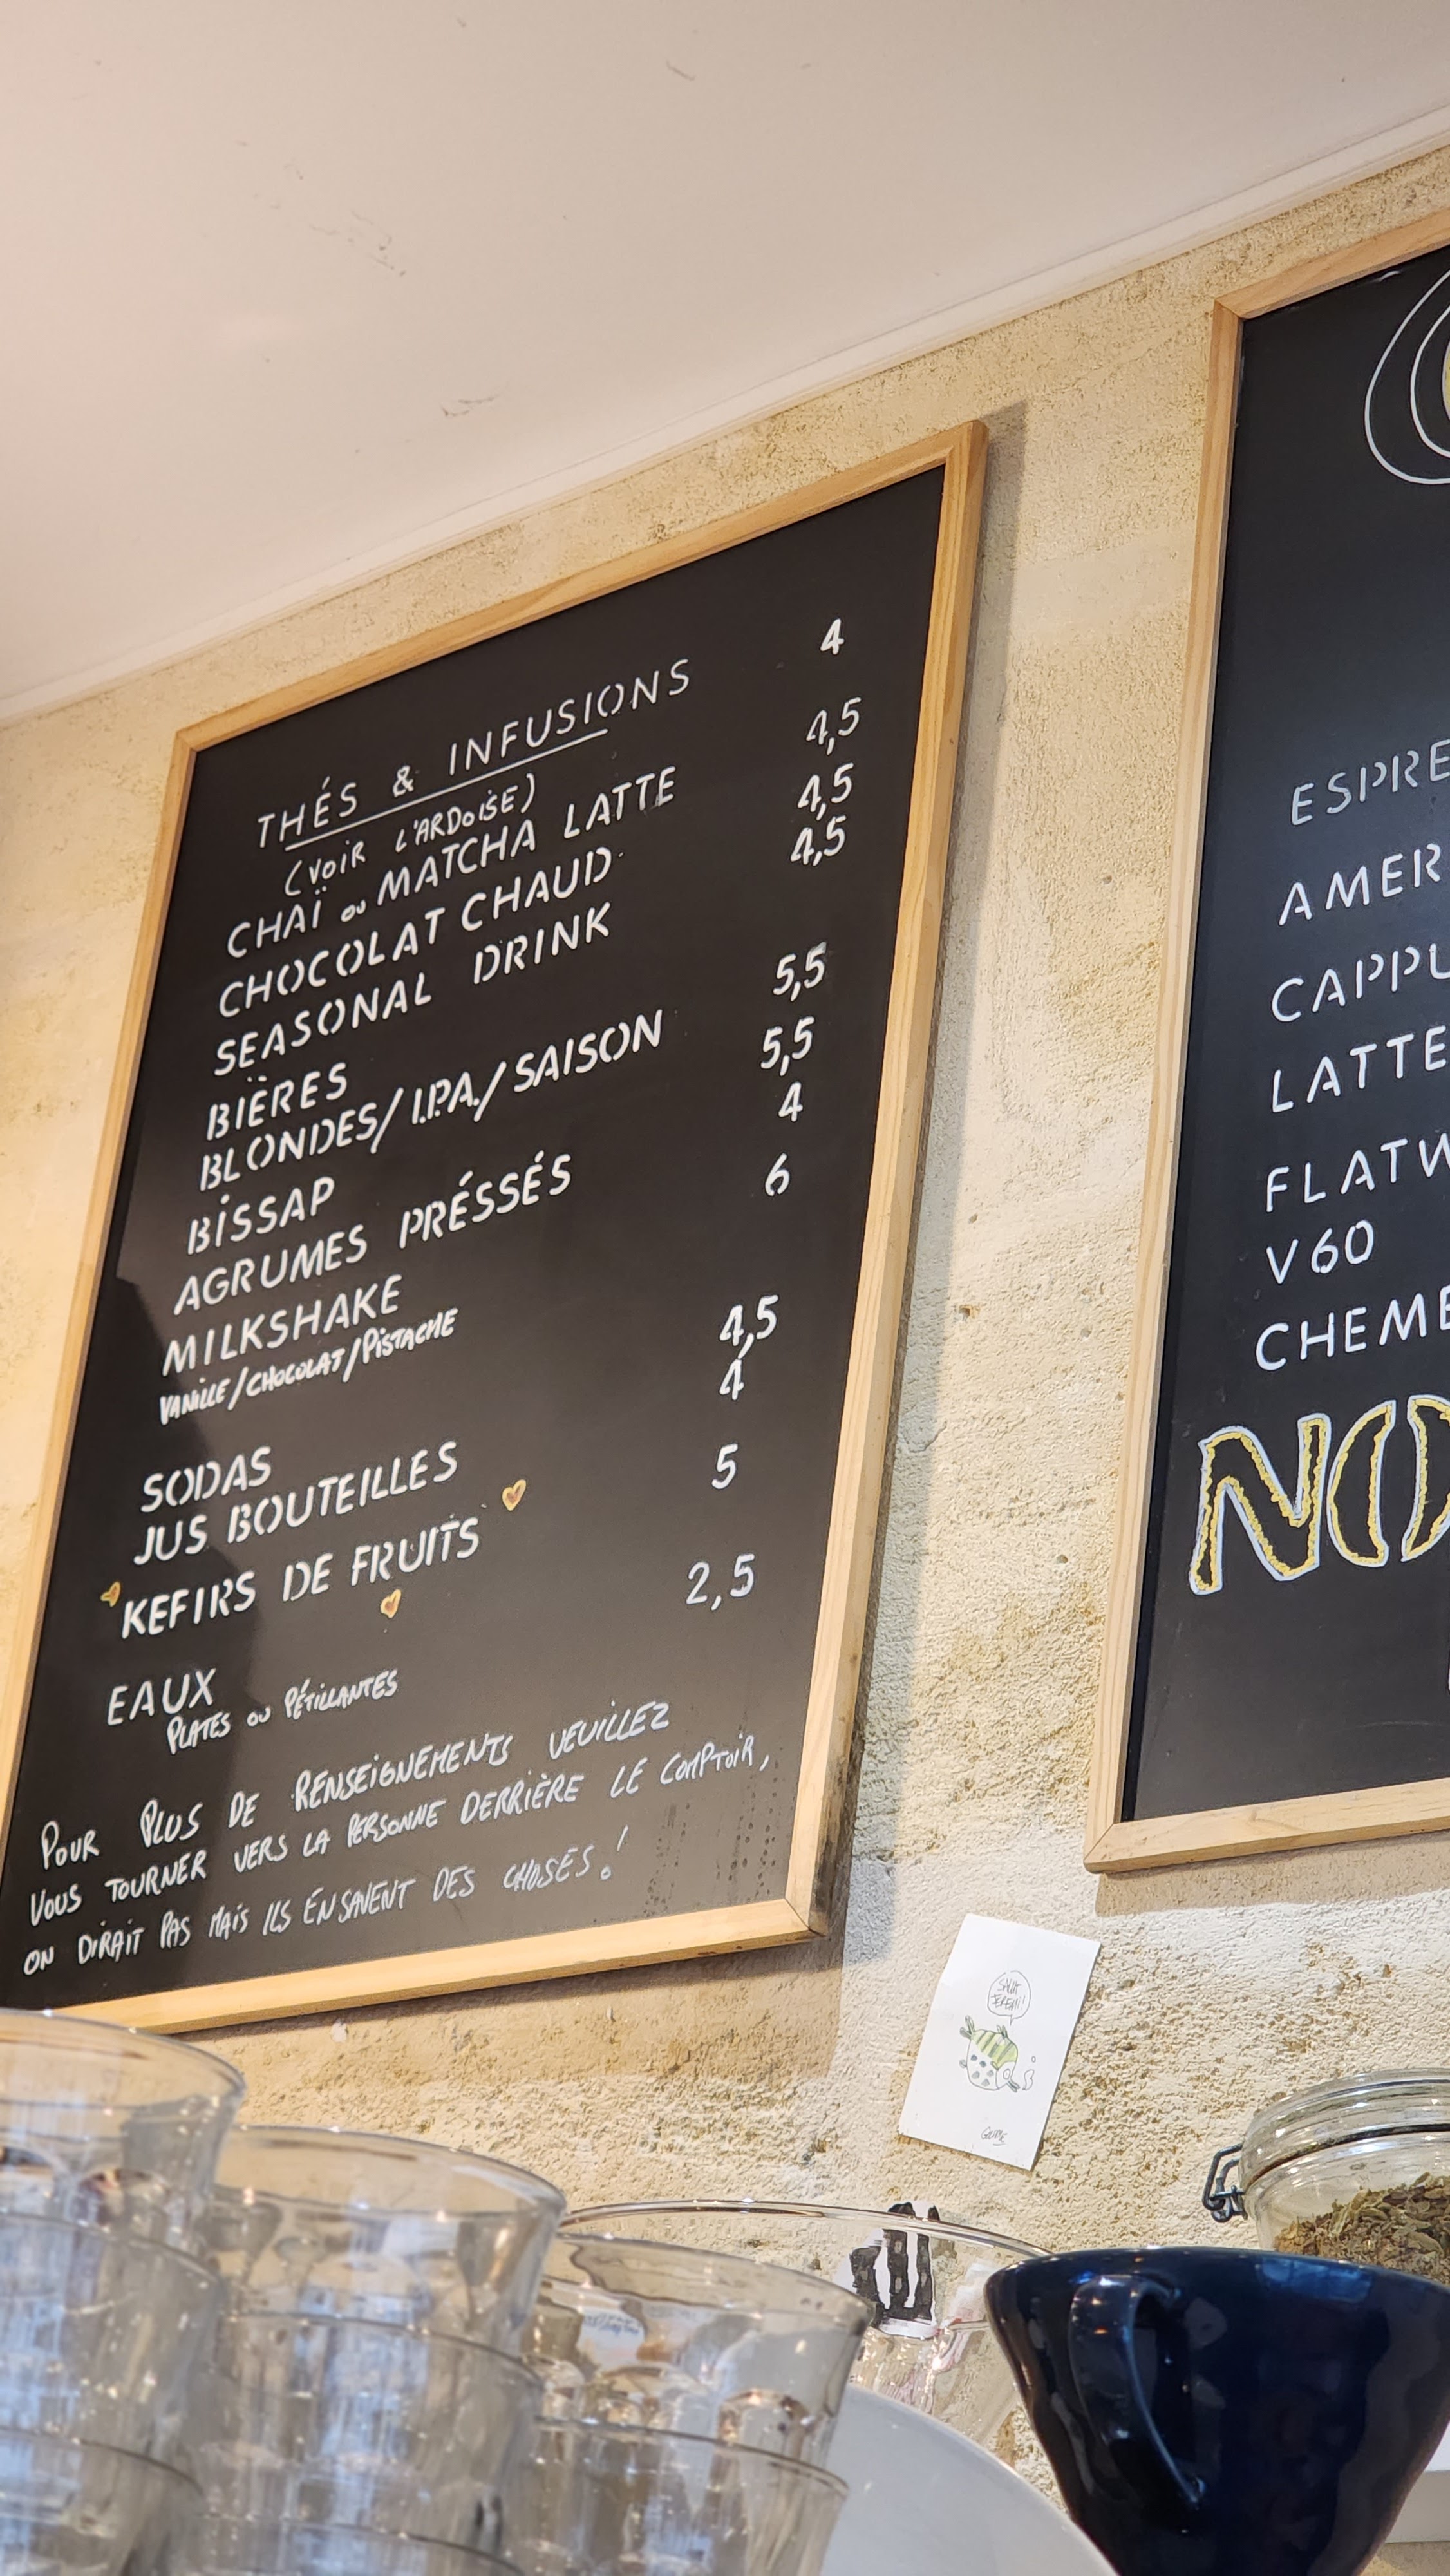 THÉS & INFUSIONS 4
(VOIR L'ARDOISE)
CHAÏ ou MATCHA LATTE 4,5
CHOCOLAT CHAUD 4,5
SEASONAL DRINK 4,5
BIÈRES
BLONDES/I.P.A./SAISON 5,5
BISSAP 5,5
AGRUMES PRÉSSÉS 4
MILKSHAKE 6
VANILLE/CHOCOLAT/PISTACHE
SODAS 4,5
JUS BOUTEILLES 4
KEFIRS DE FRUITS 5
EAUX 2,5
PLATES OU PÉTILLANTES
POUR PLUS DE RENSEIGNEMENTS VEUILLEZ
VOUS TOURNER VERS LA PERSONNE DERRIÈRE LE COMPTOIR,
ON DIRAIT PAS MAIS ILS EN SAVENT DES CHOSES !
ESPRE
AMER
CAPPU
LATTE
FLATW
V60
CHEME
NO
SALUT